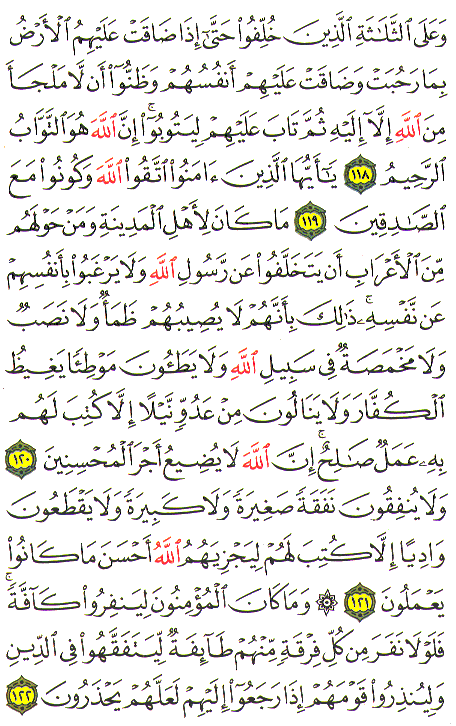 وَعَلَى ٱلثَّلَٰثَةِ ٱلَّذِينَ خُلِّفُوا۟ حَتَّىٰٓ إِذَا ضَاقَتْ عَلَيْهِمُ ٱلْأَرْضُ
بِمَا رَحُبَتْ وَضَاقَتْ عَلَيْهِمْ أَنفُسُهُمْ وَظَنُّوٓا۟ أَن لَّا مَلْجَأَ
مِنَ ٱللَّهِ إِلَّآ إِلَيْهِ ثُمَّ تَابَ عَلَيْهِمْ لِيَتُوبُوٓا۟ ۚ إِنَّ ٱللَّهَ هُوَ ٱلتَّوَّابُ
ٱلرَّحِيمُ ١١٨ يَٰٓأَيُّهَا ٱلَّذِينَ ءَامَنُوا۟ ٱتَّقُوا۟ ٱللَّهَ وَكُونُوا۟ مَعَ
ٱلصَّٰدِقِينَ ١١٩ مَا كَانَ لِأَهْلِ ٱلْمَدِينَةِ وَمَنْ حَوْلَهُم
مِّنَ ٱلْأَعْرَابِ أَن يَتَخَلَّفُوا۟ عَن رَّسُولِ ٱللَّهِ وَلَا يَرْغَبُوا۟ بِأَنفُسِهِمْ
عَن نَّفْسِهِۦ ۚ ذَٰلِكَ بِأَنَّهُمْ لَا يُصِيبُهُمْ ظَمَأٌ وَلَا نَصَبٌ
وَلَا مَخْمَصَةٌ فِى سَبِيلِ ٱللَّهِ وَلَا يَطَـُٔونَ مَوْطِئًا يَغِيظُ
ٱلْكُفَّارَ وَلَا يَنَالُونَ مِنْ عَدُوٍّ نَّيْلًا إِلَّا كُتِبَ لَهُم
بِهِۦ عَمَلٌ صَٰلِحٌ ۚ إِنَّ ٱللَّهَ لَا يُضِيعُ أَجْرَ ٱلْمُحْسِنِينَ ١٢٠
وَلَا يُنفِقُونَ نَفَقَةً صَغِيرَةً وَلَا كَبِيرَةً وَلَا يَقْطَعُونَ
وَادِيًا إِلَّا كُتِبَ لَهُمْ لِيَجْزِيَهُمُ ٱللَّهُ أَحْسَنَ مَا كَانُوا۟
يَعْمَلُونَ ١٢١ ۞ وَمَا كَانَ ٱلْمُؤْمِنُونَ لِيَنفِرُوا۟ كَآفَّةً ۚ
فَلَوْلَا نَفَرَ مِن كُلِّ فِرْقَةٍ مِّنْهُمْ طَآئِفَةٌ لِّيَتَفَقَّهُوا۟ فِى ٱلدِّينِ
وَلِيُنذِرُوا۟ قَوْمَهُمْ إِذَا رَجَعُوٓا۟ إِلَيْهِمْ لَعَلَّهُمْ يَحْذَرُونَ ١٢٢